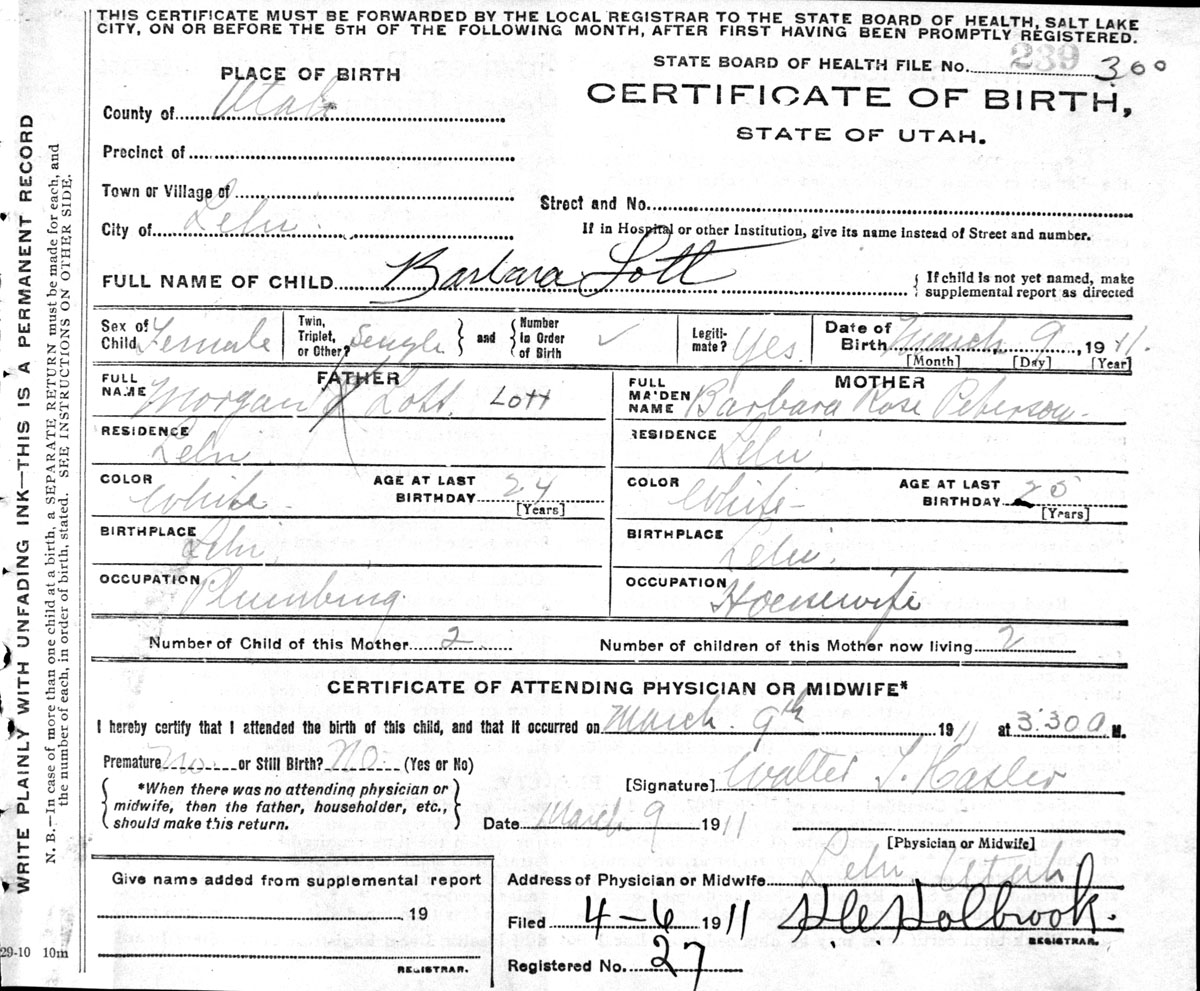 THIS CERTIFICATE MUST BE FORWARDED BY THE LOCAL REGISTRAR TO THE STATE BOARD OF HEALTH, SALT LAKE
CITY, ON OR BEFORE THE 5TH OF THE FOLLOWING MONTH, AFTER FIRST HAVING BEEN PROMPTLY REGISTERED.
WRITE PLAINLY WITH UNFADING INK—THIS IS A PERMANENT RECORD
N. B.—In case of more than one child at a birth, a SEPARATE RETURN must be made for each, and
the number of each, in order of birth, stated. SEE INSTRUCTIONS ON OTHER SIDE.
239
STATE BOARD OF HEALTH FILE No. 300
CERTIFICATE OF BIRTH,
STATE OF UTAH.
PLACE OF BIRTH
County of Utah
Precinct of
Town or Village of
City of Lehi
Street and No.
If in Hospital or other Institution, give its name instead of Street and number.
FULL NAME OF CHILD Barbara Lott
{ If child is not yet named, make
supplemental report as directed
Sex of Child Female
Twin, Triplet, or Other? Single } and { Number in Order of Birth ✓
Legiti-mate? Yes
Date of Birth March 9, 1911.
[Month] [Day] [Year]
FATHER
FULL NAME Morgan Lott. LOTT
RESIDENCE Lehi
COLOR White
AGE AT LAST BIRTHDAY 24
[Years]
BIRTHPLACE Lehi
OCCUPATION Plumbing
MOTHER
FULL MAIDEN NAME Barbara Rose Peterson
RESIDENCE Lehi
COLOR White
AGE AT LAST BIRTHDAY
[Years]
BIRTHPLACE Lehi
OCCUPATION Housewife
Number of Child of this Mother 2 Number of children of this Mother now living 2
CERTIFICATE OF ATTENDING PHYSICIAN OR MIDWIFE*
I hereby certify that I attended the birth of this child, and that it occurred on March 9th 1911 at 3:30 a M.
Premature No or Still Birth? No. (Yes or No)
{ *When there was no attending physician or
midwife, then the father, householder, etc.,
should make this return. }
[Signature] Walter T. Hasler
Date March 9 1911
[Physician or Midwife]
Give name added from supplemental report
19
REGISTRAR.
Address of Physician or Midwife Lehi Utah
Filed 4-6 1911 Holbrook.
REGISTRAR.
Registered No. 27
29-10 10m